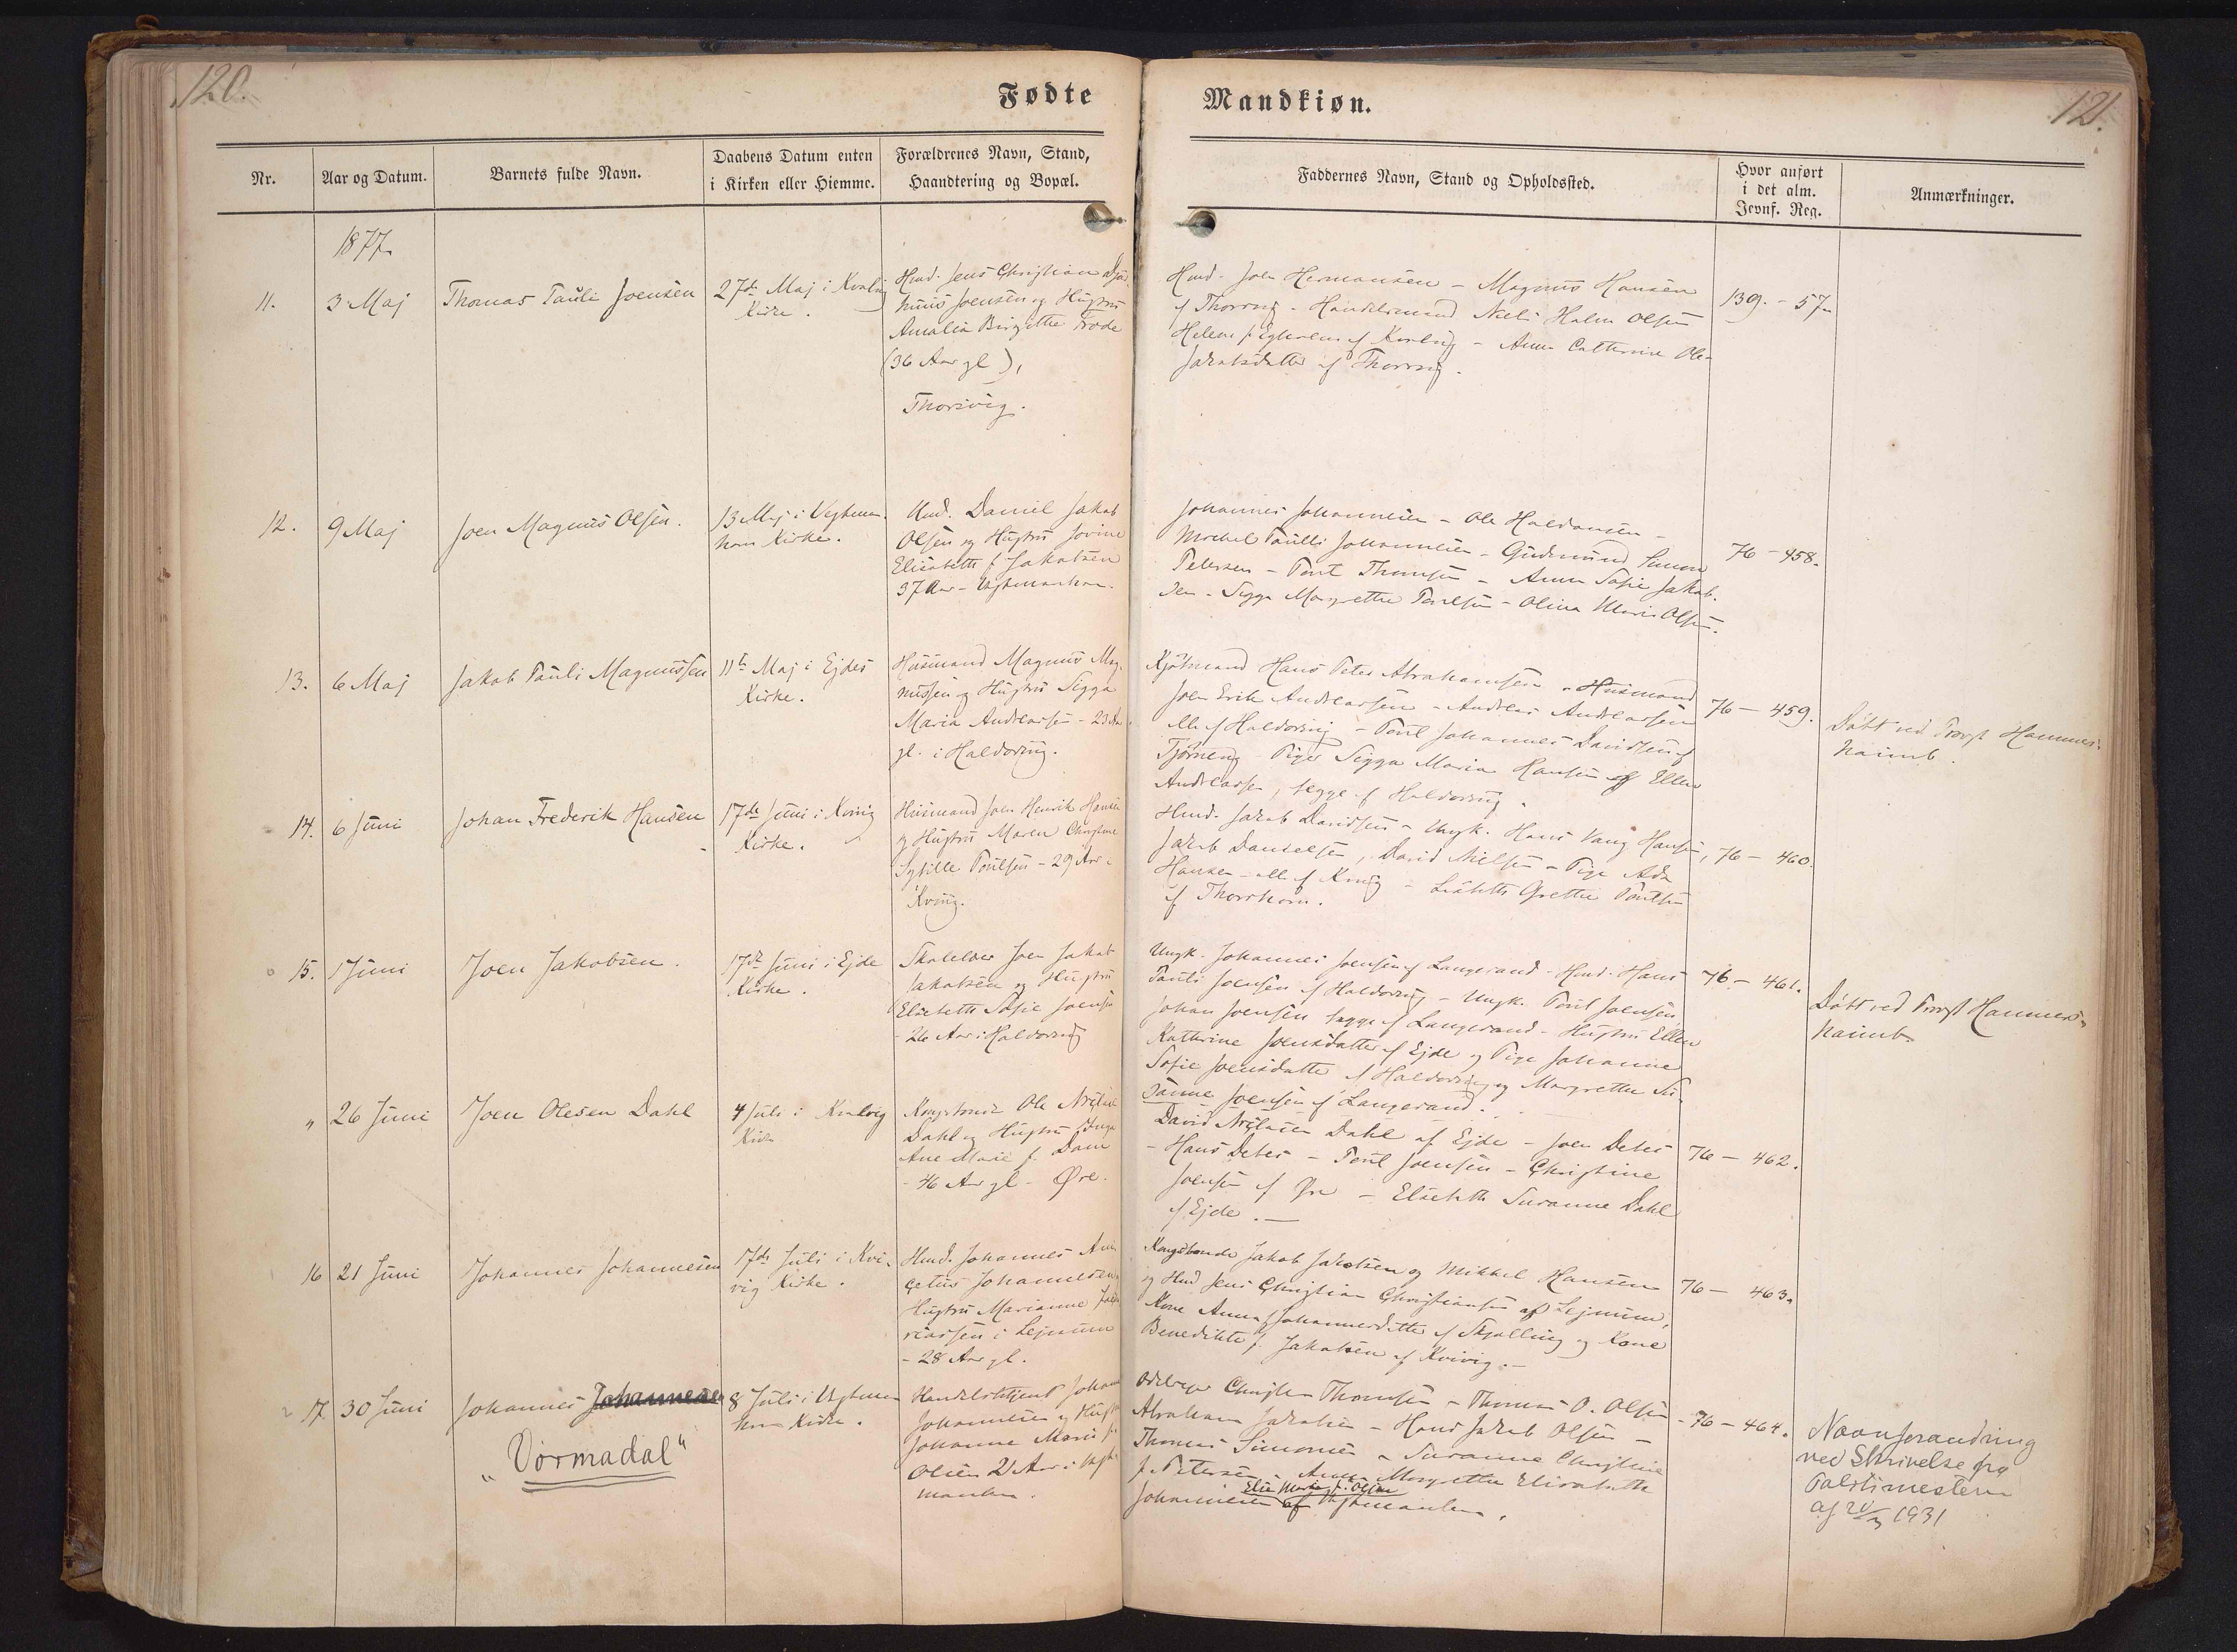 120.
Fødte
Nr.
Aar og Datum.
Barnets fulde Navn.
Daabens Datum enten
i Kirken eller Hiemme.
Forældrenes Navn, Stand,
Haandtering og Bopæl.
1877.
11.
3 Maj
Thomas Pauli Joensen
27de Maj i Kvalvig
Kirke.
Hmd. Jens Christian
Joensen og Hustru
Amalia Birgitthe
(36 Aar gl),
Thorsvig.
12.
9 Maj
Joen Magnus Olsen.
13 Maj i Vestman-
havn Kirke.
Hmd. Daniel Jakob
Olsen og Hustru Jovine
Elisabeth f. Jakobsen
37 Aar - Vestmanhavn.
13.
6 Maj
Jakob Pauli Magnussen
11te Maj i Ejdes
Kirke.
Husmand Magnus Mag-
nussen og Hustru Sigga
Maria Andreassen - 23 Aar
gl. i Haldorsvig.
14.
6 Juni
Johan Frederik Hansen
17de Juni i Kvivig
Kirke.
Husmand Joen Henrik Hansen
og Hustru Maren Christine
Sybille Poulsen - 29 Aar -
Kvivig.
15.
1 Juni
Joen Jakobsen.
17de Juni i Ejde
Kirke.
Skolelærer Joen Jakob
Jakobsen og Hustru
Elisabeth Sofie Joensen
- 26 Aar i Haldorsvig
"
26 Juni
Joen Olesen Dahl
4 Juli i Kvalvig
Kirke
Kongsbonde Ole
Dahl og Hustru Inga
Ane Marie f. Dam
- 46 Aar gl - Øre.
16
21 Juni
Johannes Johannesen
17de Juli i Kvi-
vig Kirke.
Hmd. Johannes
Johannesen
Hustru Marianne
i Lejnum
- 28 Aar gl.
17
30 Juni
Johannes Johannesen
"Vormadal"
8 Juli i Vestman
havn Kirke.
Handelsbetjent Johan
Johannesen og Hustru
Johanne Maria f.
Olsen 21 Aar i Vest-
manhavn.
Mandkiøn.
121.
Faddernes Navn, Stand og Opholdssted.
Hvor anført
i det alm.
Jevnf. Reg.
Anmærkninger.
Hmd. Joen Hermansen - Magnus Hansen
af Thorsvig - Handelsmand Niels Holm Olsen
Helene f. af Kvalvig - Anna Cathrine Ole-
Jakobsdatter af Thorsvig.
139. - 57.
Johannes Johannesen - Ole Haldansen -
Michel Poulli Johannesen - Gudmund Simon
Petersen - Poul Thomsen - Anna Sofie Jakob-
sen - Sigga Margrethe Poulsen - Olina Maria Olsen.
76 - 458.
Kjøbmand Hans Peter Abrahamsen - Husmand
Joen Erik Andreassen - Andreas Andreassen
alle af Haldorsvig - Poul Johannes Davidsen af
Tjørnevig - Piger Sigga Maria Hansen og Ellen
Andreassen, begge af Haldorsvig.
76 - 459.
Døbt ved Provst Hammers-
haimb.
Hmd. Jakob Davidsen - Ungk. Hans Vang Hansen,
Jakob Danielsen, David Nielsen - Pige Ada
Hansen - alle af Kvivig - Lisbeth Grethe Poulsen
af Thorshavn.
76 - 460.
Ungk. Johannes Joensen af Langesand - Hmd. Hans
Pauli Joensen af Haldorsvig - Ungk. Poul Joensen
Johan Joensen begge af Langesand - Hustru Ellen
Kathrine Joensdatter af Ejde og Pige Johanne
Sofie Joensdatter af Haldorsvig og Margrethe Su-
sanne Joensen af Langesand.
76 - 461.
Døbt ved Provst Hammers-
haimb
David Dahl af Ejde - Joen Debes
- Hans Debes - Poul Joensen - Christine
Joensen af Øre - Elsebeth Susanne Dahl
af Ejde. -
76 - 462.
Kongsbonde Jakob Jakobsen og Mikkel Hansen
og Hmd Jens Christian Christiansen af Lejnum,
Kone Anna Johannesdatter af Skjælling og Kone
Benedikte f. Jakobsen af Kvivig. -
76 - 463.
Christen Thomsen - Thomas O. Olsen -
Abraham Jakobsen - Hans Jakob Olsen -
Thomas Simonsen - Susanne Christine
f. Petersen - Anna Margrethe Elisabeth
Else Marie f. Olsen
Johannesen af Vestmanhavn.
76 - 464.
Navneforandring
ved Skrivelse fra
Politimesteren
af 1931